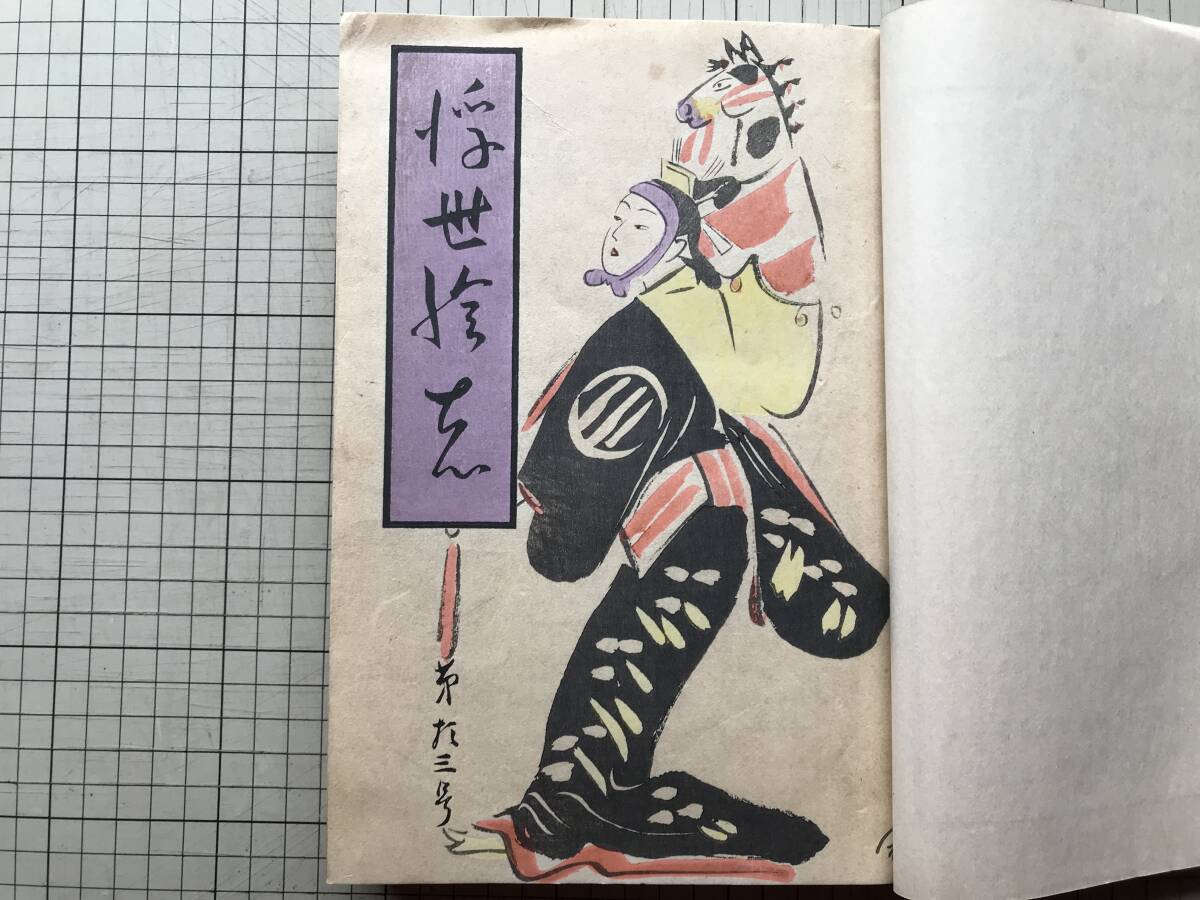 浮世絵志
第拾三号